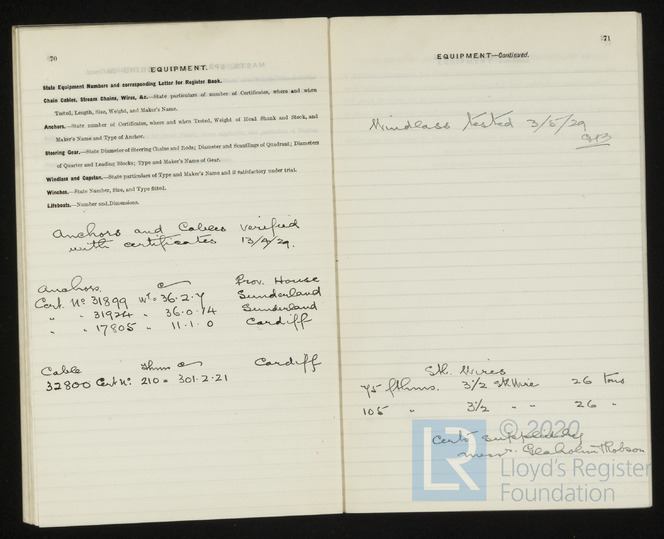 70
EQUIPMENT.
State Equipment Numbers and corresponding Letter for Register Book.
Chain Cables, Stream Chains, Wires, &c.—State particulars of number of Certificates, where and when
Tested, Length, Size, Weight, and Maker's Name.
Anchors.—State number of Certificates, where and when Tested, Weight of Head Shank and Stock, and
Maker's Name and Type of Anchor.
Steering Gear.—State Diameter of Steering Chains and Rods; Diameter and Scantlings of Quadrant; Diameters
of Quarter and Leading Blocks; Type and Maker's Name of Gear.
Windlass and Capstan.—State particulars of Type and Maker's Name and if satisfactory under trial.
Winches.—State Number, Size, and Type fitted.
Lifeboats.—Number and Dimensions.
Anchors and Cables verified
with certificates 13/4/29.
Anchors. Prov. House
Cert. No 31899 wt = 36.2.7 Sunderland
" " 31924 " 36.0.14 Sunderland
" " 17805 " 11.1.0 Cardiff
Cable Cardiff
32800 Cert No. 210 = 301.2.21
71
EQUIPMENT—Continued.
Windlass tested 3/5/29
Stl. Wires
75 fthms. 3½ Stl Wire 26 tons
105 " 3½ " " 26 "
Certs supplied by
Messrs. Glaholm & Robson
© 2020
LR
Lloyd's Register
Foundation